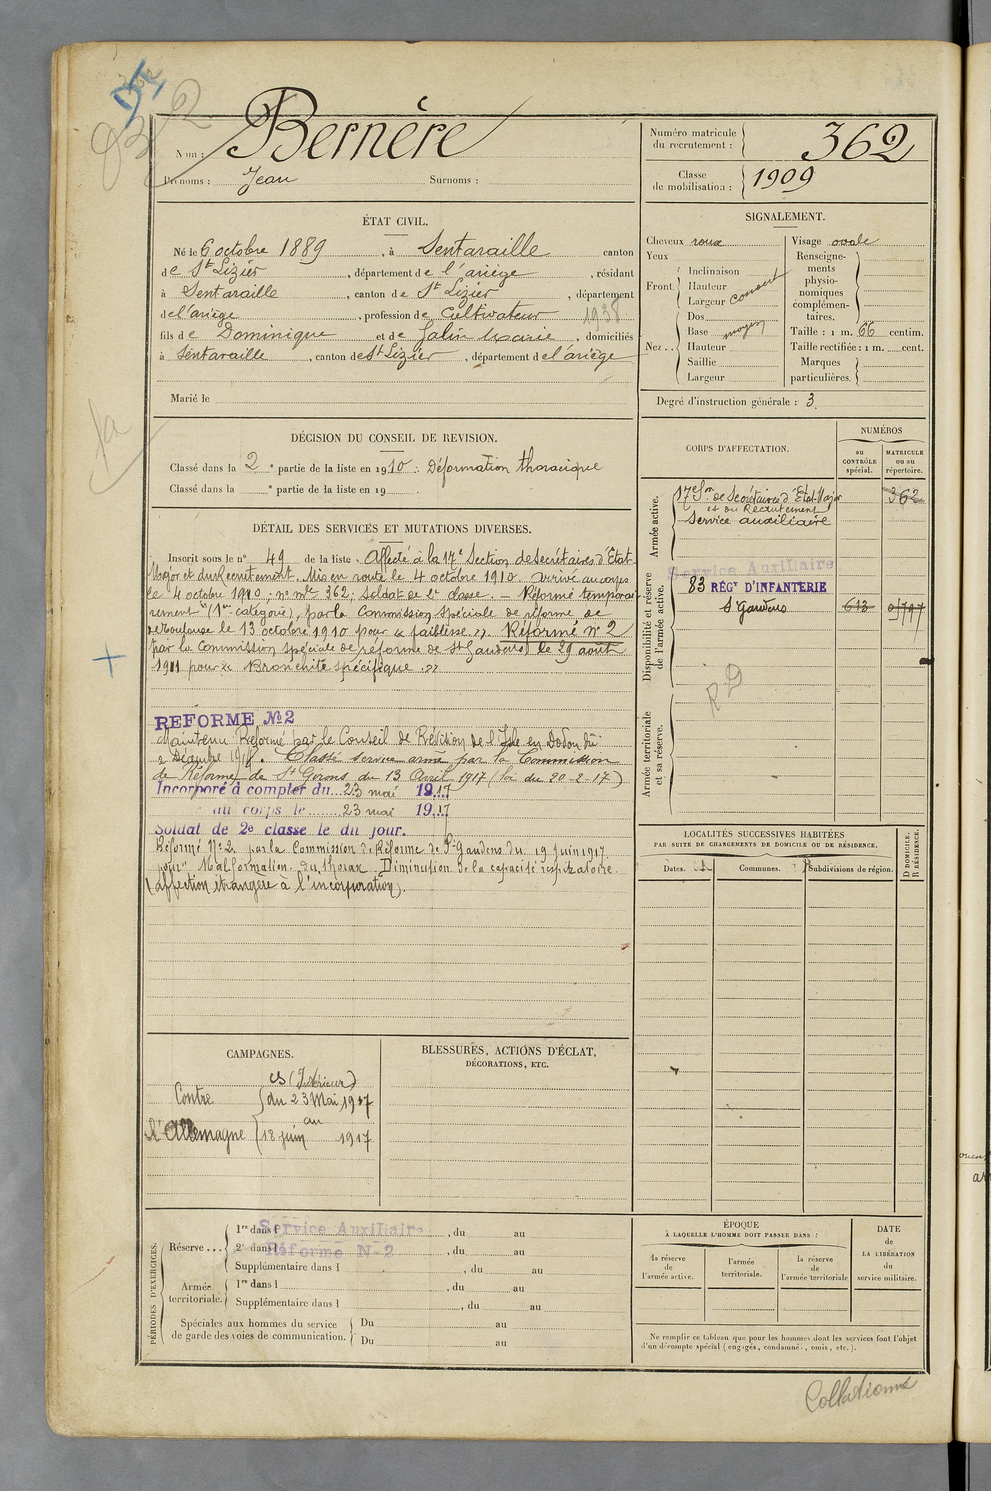 Nom : Bernère
Prénoms : Jean Surnoms :
Numéro matricule du recrutement : 362
Classe de mobilisation : 1909
ÉTAT CIVIL.
Né le 6 octobre 1889, à Sentaraille canton
de St Lizier, département de l'ariège, résidant
à Sentaraille, canton de St Lizier, département
de l'ariège, profession de Cultivateur 1938
fils de Dominique et de Galin Marie, domiciliés
à Sentaraille, canton de St Lizier, département de l'ariège
Marié le
SIGNALEMENT.
Cheveux roux
Yeux
Front. Inclinaison
Hauteur
Largeur
Nez .. Dos
Base moyen
Hauteur
Saillie
Largeur
Visage ovale
Renseignements physionomiques complémentaires.
Taille : 1 m. 66 centim.
Taille rectifiée : 1 m. cent.
Marques particulières.
Degré d'instruction générale : 3
DÉCISION DU CONSEIL DE REVISION.
Classé dans la 2e partie de la liste en 1910 : Déformation thoracique
Classé dans la e partie de la liste en 19
DÉTAIL DES SERVICES ET MUTATIONS DIVERSES.
Inscrit sous le n° 49 de la liste. Affecté à la 17e Section de Secrétaires d'État-
Major et du Recrutement. Mis en route le 4 octobre 1910. Arrivé au corps
le 4 octobre 1910 ; n° mle 362, soldat de 2e classe. – Réformé temporai-
rement "(1re catégorie), par la Commission spéciale de réforme de
de Toulouse le 13 octobre 1910 pour « faiblesse ». Réformé n° 2
par la Commission spéciale de réforme de St Gaudens le 29 août
1911 pour « Bronchite spécifique ».
REFORME No 2
Maintenu Réformé par le Conseil de Révision de l'Isle en Dodon du
2 Décembre 1914. Classé service armé par la Commission
de Réforme de St Girons du 13 Avril 1917 (loi du 20-2-17)
Incorporé à compter du 23 mai 1917
au corps le 23 mai 1917
Soldat de 2e classe le du jour.
Réformé N° 2. par la Commission de Réforme de St Gaudens du 19 juin 1917
pour "Malformation du thorax Diminution de la capacité respiratoire.
(affection étrangère à l'incorporation).
CORPS D'AFFECTATION.
NUMÉROS
au CONTRÔLE spécial.
MATRICULE ou au répertoire.
Armée active.
17e Son de Secrétaires d'État-Major 362
et du Recrutement
Service auxiliaire
Disponibilité et réserve de l'armée active.
Service Auxiliaire
83 RÉGt D'INFANTERIE
St Gaudens
R D
Armée territoriale et sa réserve.
LOCALITÉS SUCCESSIVES HABITÉES
PAR SUITE DE CHANGEMENTS DE DOMICILE OU DE RÉSIDENCE.
Dates. Communes. Subdivisions de région. D DOMICILE. R RÉSIDENCE.
CAMPAGNES.
cs (Intérieur)
Contre du 23 Mai 1917
au
l'Allemagne 18 juin 1917
BLESSURES, ACTIONS D'ÉCLAT,
DÉCORATIONS, ETC.
PÉRIODES D'EXERCICES.
Service Auxiliaire
Réforme N-2
Réserve ... 1re dans l , du au
2e dans l , du au
Supplémentaire dans l , du au
Armée territoriale. 1re dans l , du au
Supplémentaire dans l , du au
Spéciales aux hommes du service de garde des voies de communication. Du au
Du au
ÉPOQUE
À LAQUELLE L'HOMME DOIT PASSER DANS :
la réserve de l'armée active.
l'armée territoriale.
la réserve de l'armée territoriale
DATE
de
LA LIBÉRATION
du
service militaire.
Ne remplir ce tableau que pour les hommes dont les services font l'objet
d'un décompte spécial (engagés, condamnés, omis, etc.).
Collationné